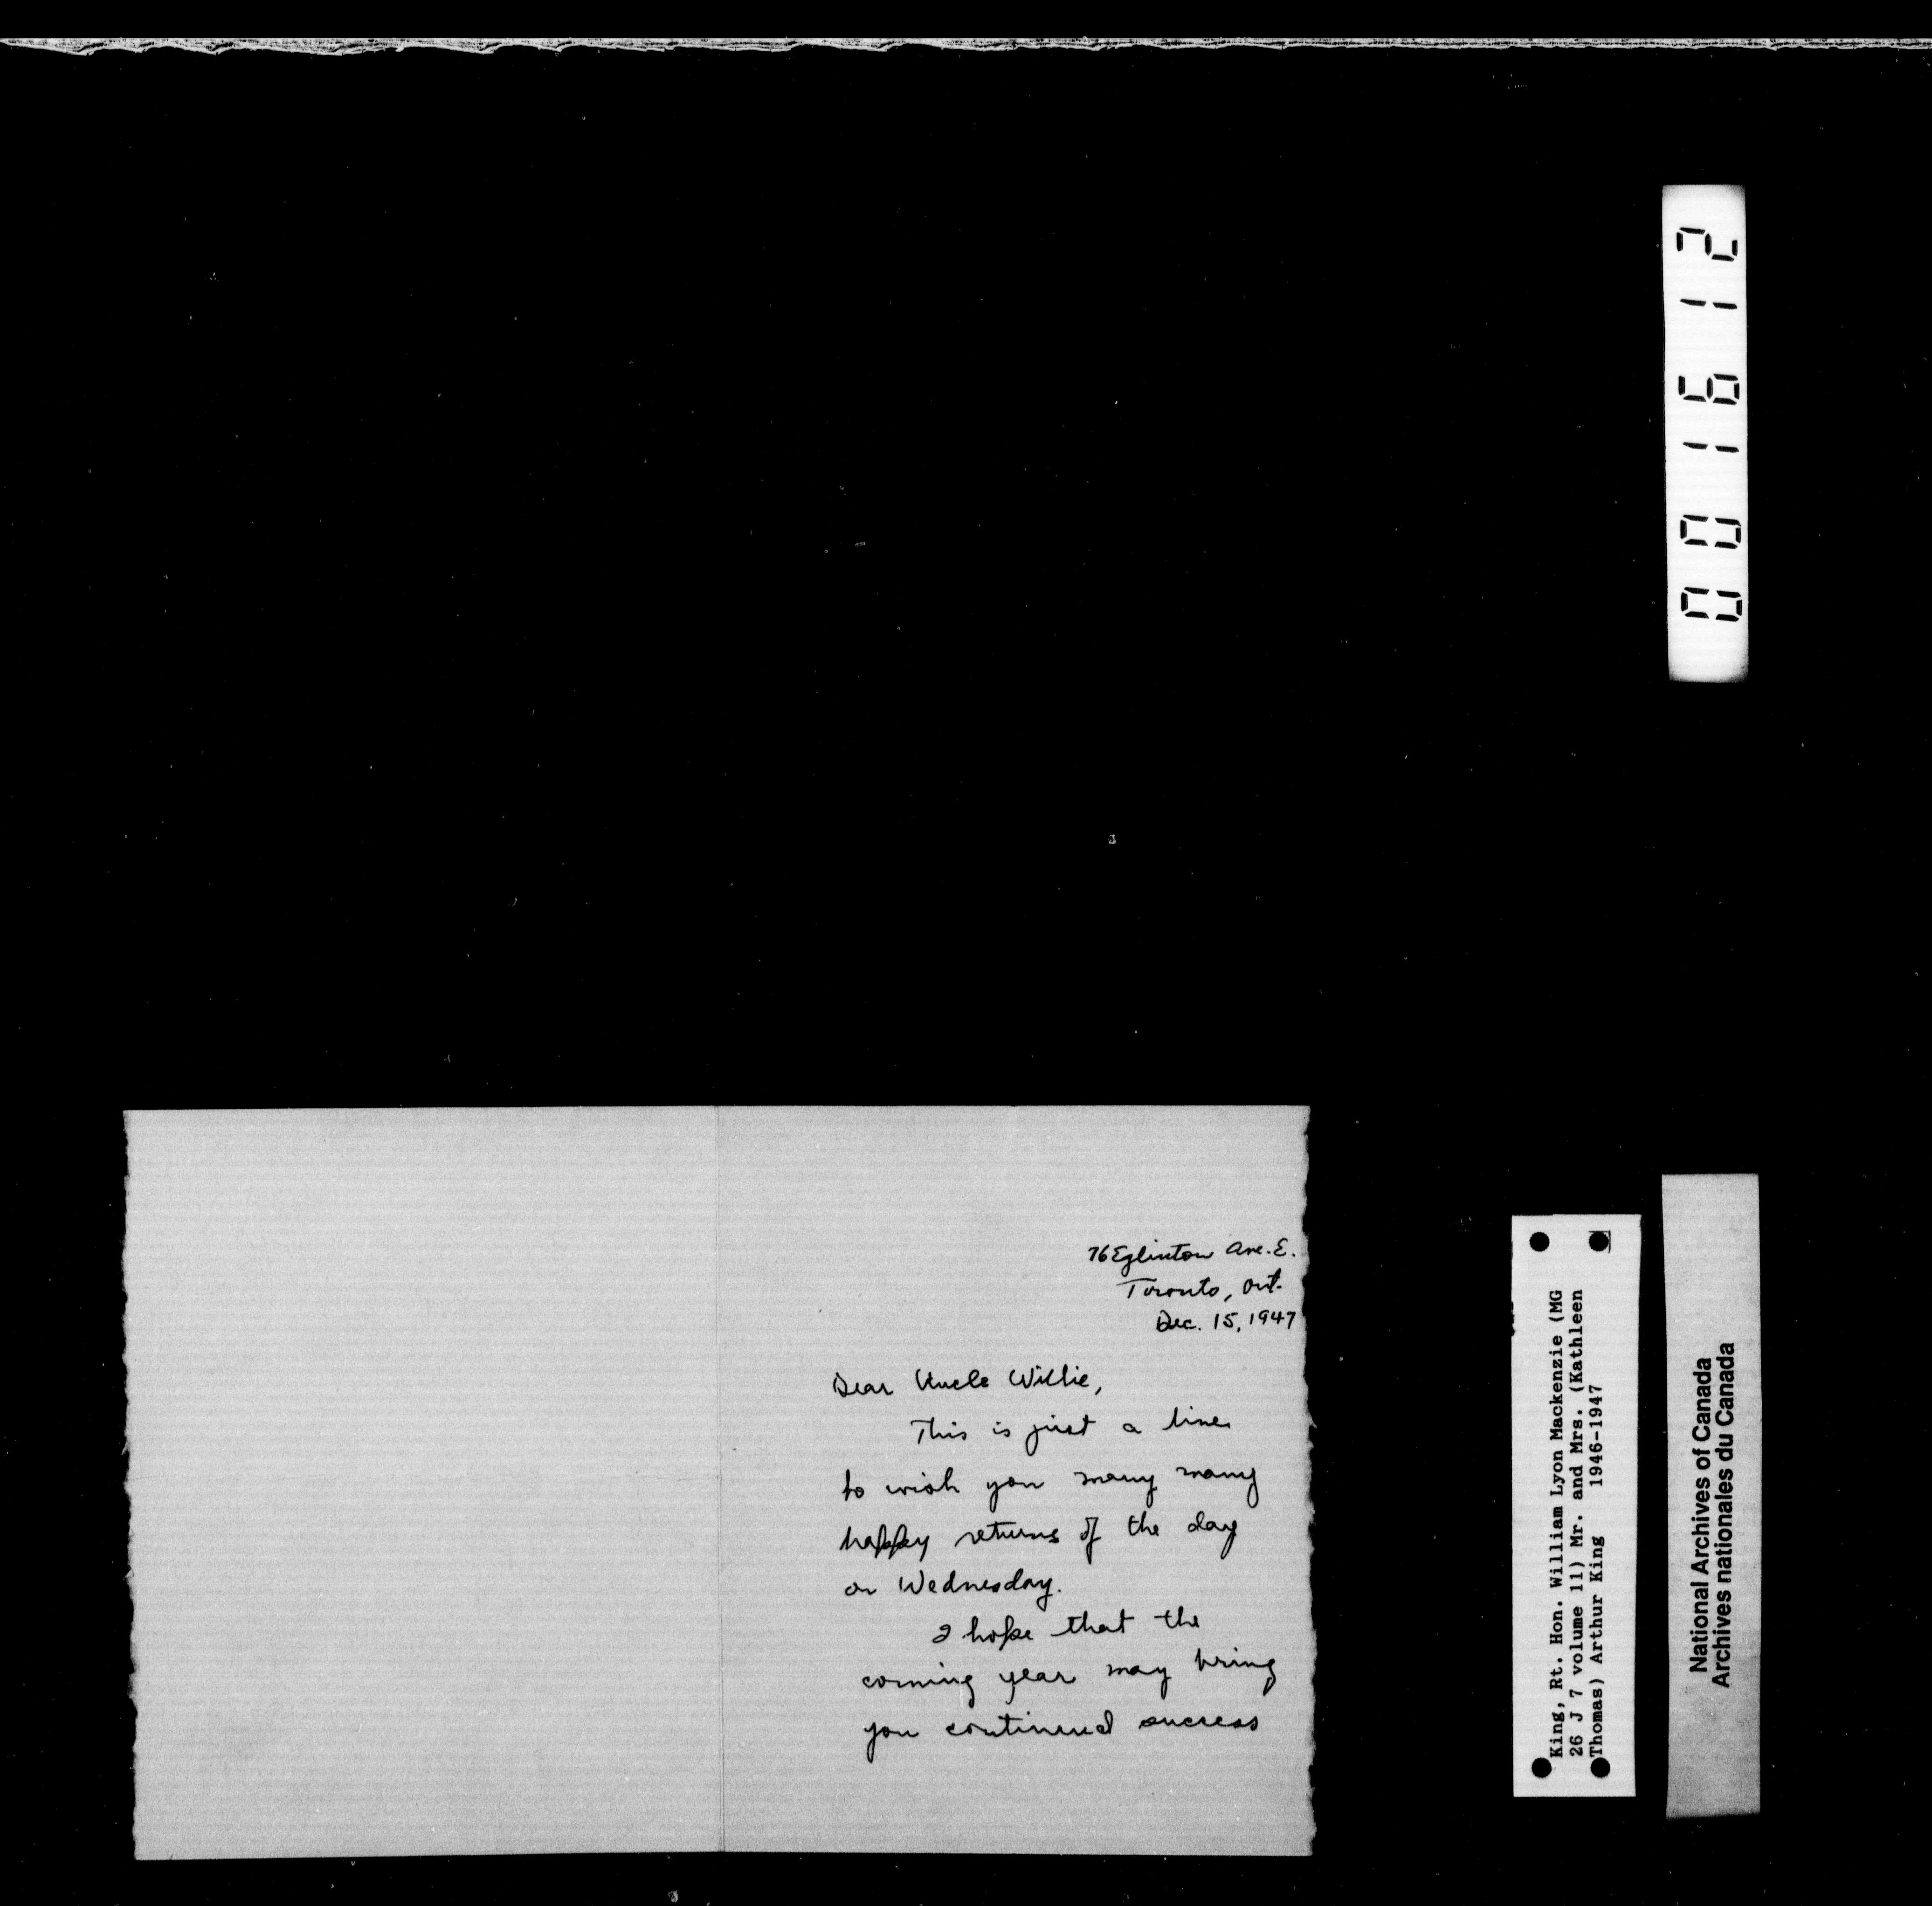 001612
76 Eglinton Ave. E.
Toronto, Ont.
Dec. 15, 1947
Dear Uncle Willie,
This is just a line
to wish you many many
happy returns of the day
on Wednesday.
I hope that the
coming year may bring
you continued success
King, Rt. Hon. William Lyon Mackenzie (MG
26 J 7 volume 11) Mr. and Mrs. (Kathleen
Thomas) Arthur King 1946-1947
National Archives of Canada
Archives nationales du Canada